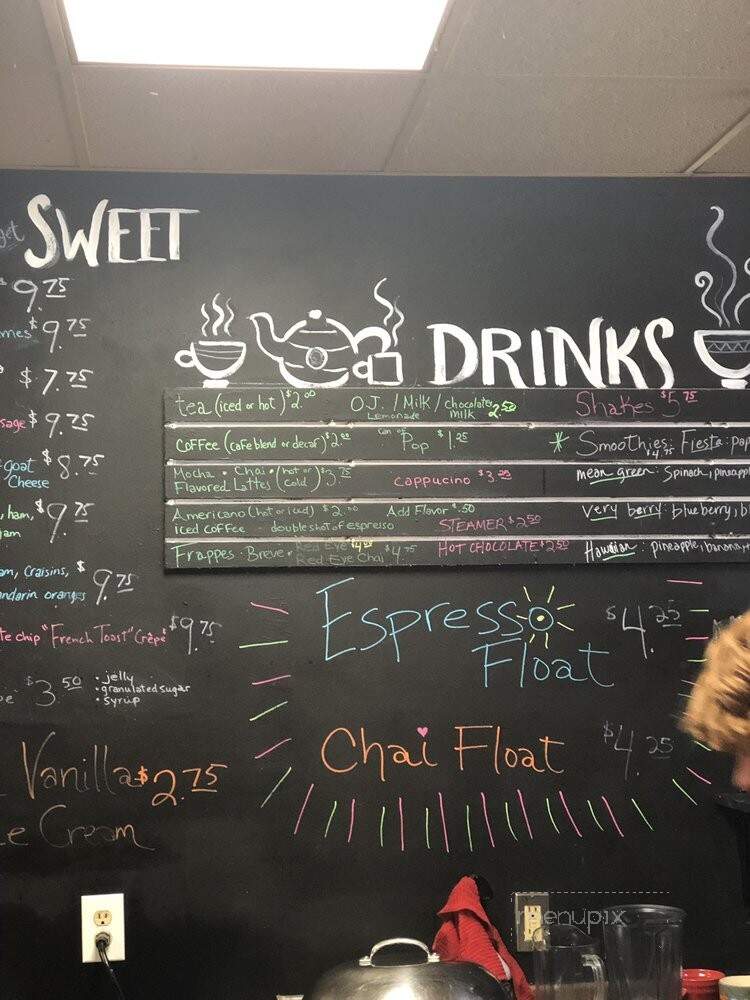 get SWEET
$9.75
mes $9.75
$7.75
sage $9.75
goat $8.75
Cheese
, ham, $9.75
am
am, Craisins, $9.75
ndarin oranges
te chip "French Toast" Crêpe $9.75
pe $3.50 • jelly
• granulated sugar
• syrup
Vanilla $2.75
e Cream
DRINKS
tea (iced or hot) $2.00
O.J. / Milk / chocolate milk 2.50
Lemonade
Shakes $5.75
Coffee (cafe blend or decaf) $2.00
can of Pop $1.25
* Smoothies: Fiesta: pap
$4.75
Mocha • Chai • (hot or cold) $3.75
Flavored Lattes
cappucino $3.25
mean green: Spinach, pineappl
Americano (hot or iced) $2.00 Add Flavor $.50
iced coffee double shot of espresso
STEAMER $2.50
Very berry: blueberry, bl
Frappes • Breve • Red Eye $4.00
Red Eye Chai $4.75
HOT CHOCOLATE $2.50
Hawaiian: pineapple, banana,
Espresso Float $4.25
Chai Float $4.25
menupix